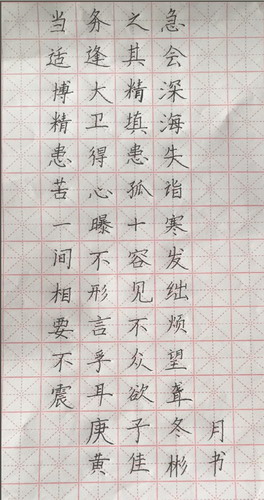 当务之急
适逢其会
博大精深
精卫填海
患得患失
苦心孤诣
一曝十寒
间不容发
相形见绌
要言不烦
不孚众望
震耳欲聋
庚子冬月
黄佳彬书